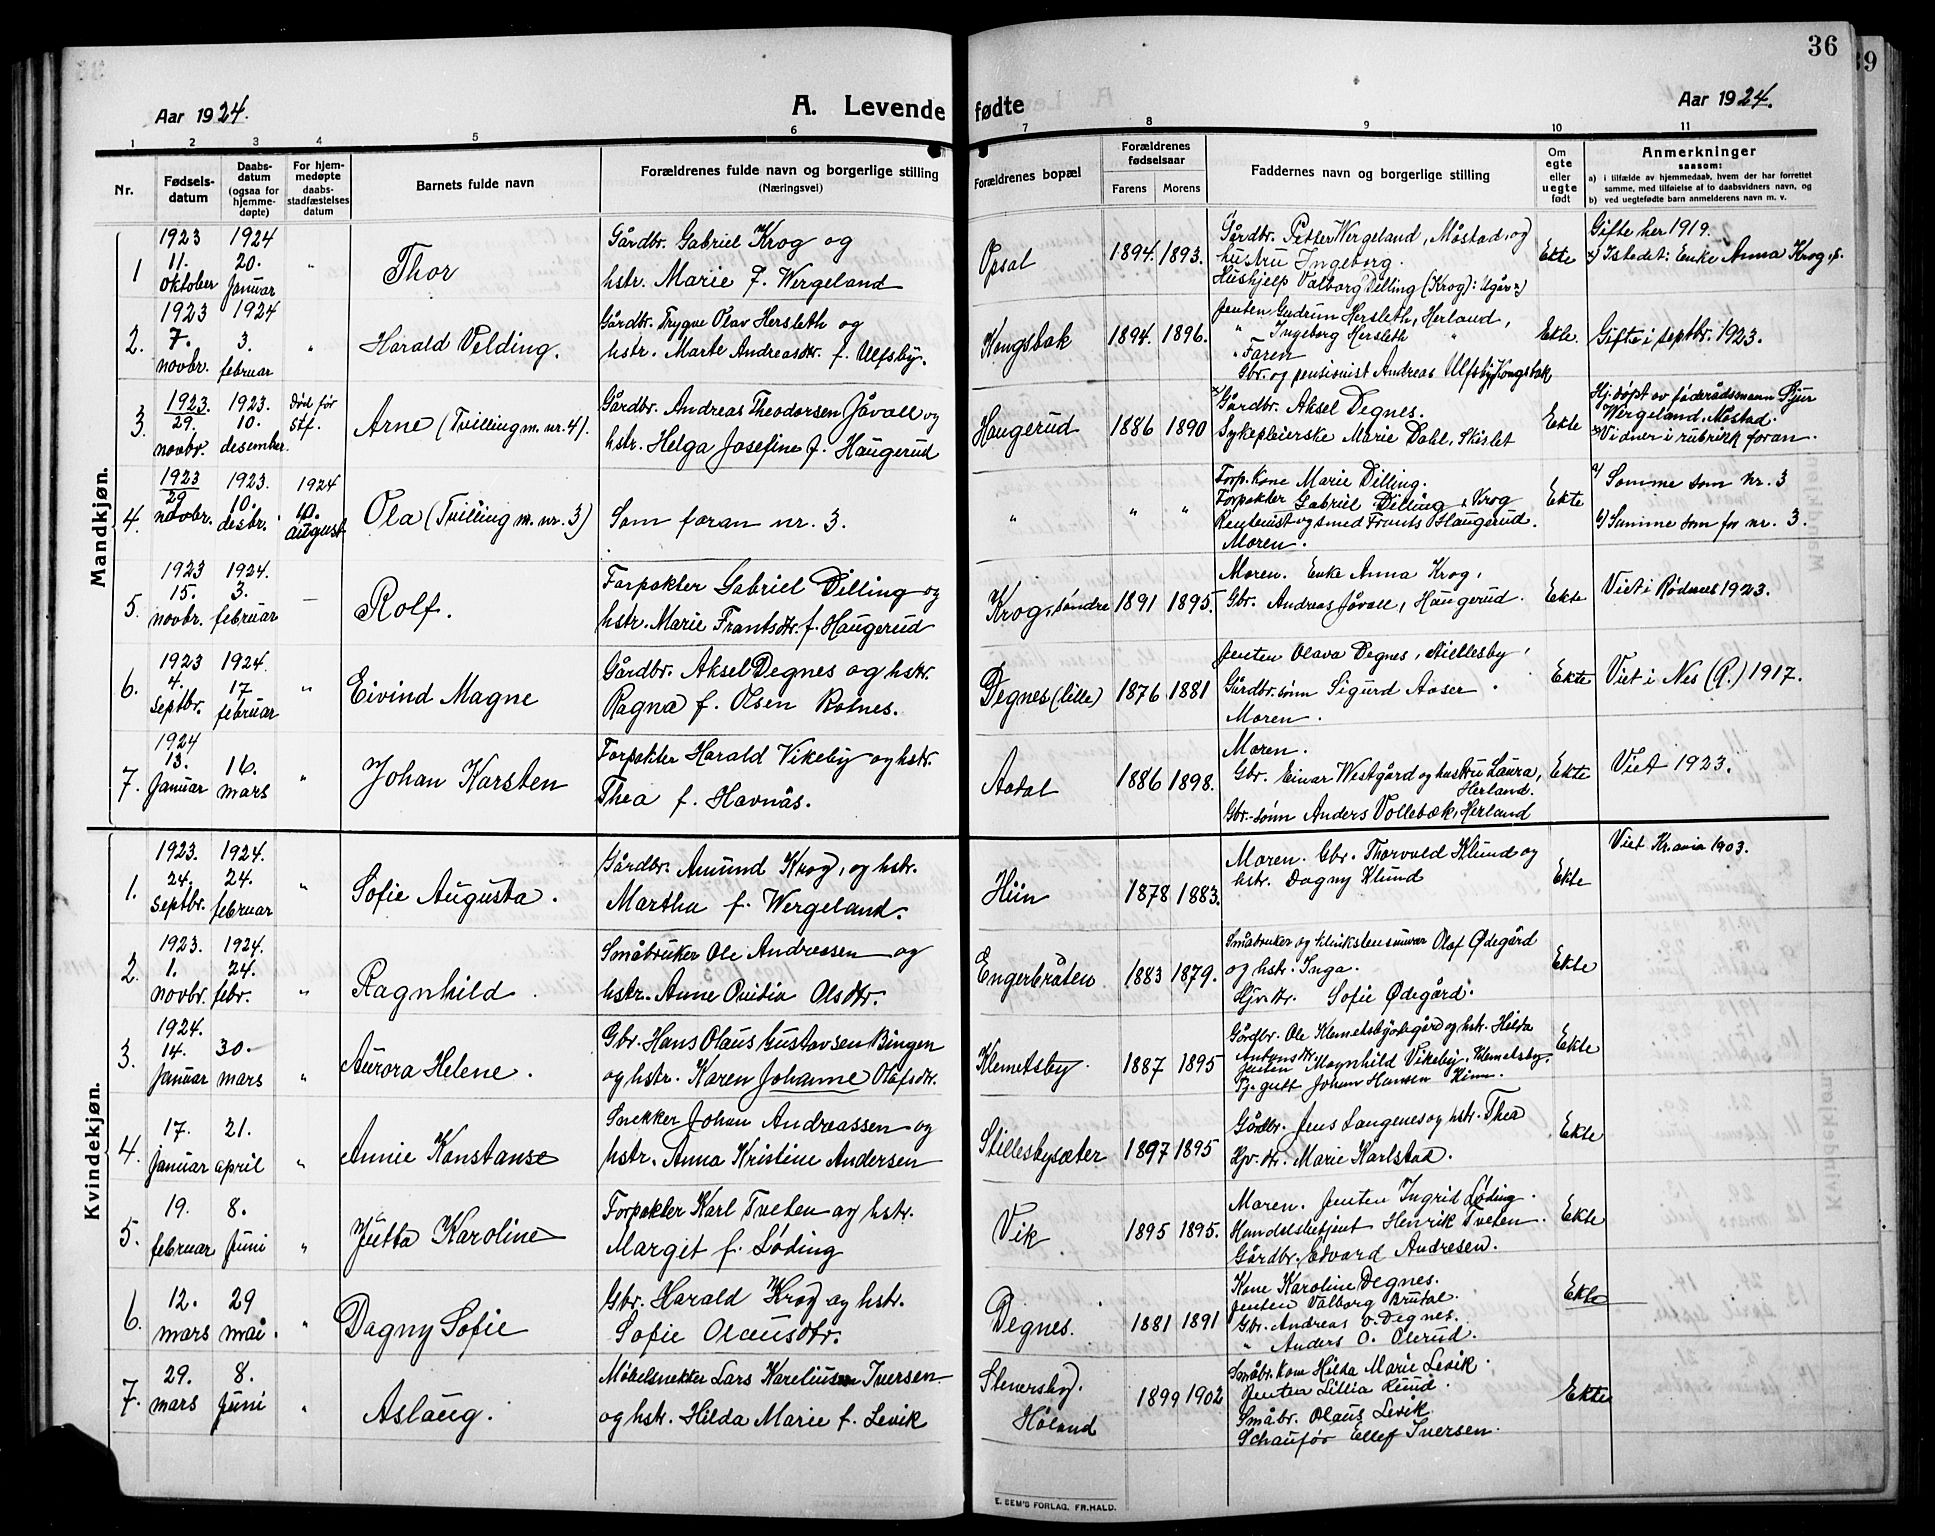 36
39
Aar 1924.
A. Levende fødte
Aar 1924.
1 2 3 4 5 6 7 8 9 10 11
Nr.
Fødsels-
datum
Daabs-
datum
(ogsaa for
hjemme-
døpte)
For hjem-
medøpte
daabs-
stadfæstelses
datum
Barnets fulde navn
Forældrenes fulde navn og borgerlige stilling
(Næringsvei)
Forældrenes bopæl
Forældrenes
fødselsaar
Farens Morens
Faddernes navn og borgerlige stilling
Om
egte
eller
uegte
født
Anmerkninger
saasom:
a) i tilfælde av hjemmedaab, hvem der har forrettet
samme, med tilføielse af to daabsvidners navn, og
b) ved uegtefødte barn anmelderens navn m. v.
Mandkjøn.
1
1923
11.
oktober
1924
20.
Januar
"
Thor
Gårdbr. Gabriel Krog og
hstr. Marie f. Wergeland
Opsal
1894. 1893.
Gårdbr. Petter Wergeland, Måstad, og
hustru Ingeborg.
Hushjelp Valborg Dilling (Krog): Ugår x)
Ekte
Gifte her 1919.
x) Istedet: Enke Anna Krog, s.
2.
1923
7.
novbr.
1924
3.
februar
"
Harald Velding.
Gårdbr. Trygve Olav Hersleth og
hstr. Marte Andreasdtr. f. Ulfsby.
Kongsbak
1894. 1896.
Jenten Gudrun Hersleth, Herland,
" Ingeborg Hersleth "
Faren
Gbr. og pensionist Andreas Ulfsby, Kongsbak
Ekte.
Gifte i septbr. 1923.
3.
1923.
29.
novbr.
1923.
10.
desember.
Død før
stf.
Arne (Tvilling m. nr. 4).
Gårdbr. Andreas Theodorsen Jåvall og
hstr. Helga Josefine f. Haugerud
Haugerud
1886 1890
x) Gårdbr. Aksel Degnes.
Sykepleierske Marie Dahl, Skislet
Ekte
Hj. døpt av føderådsmann Sjur
Wergeland, Måstad.
x) Vidner i rubrikk foran.
4.
1923
29
novbr.
1923.
10.
desbr.
1924
10.
august
Ola (Tvilling m. nr. 3)
Som foran nr. 3.
" " "
Forp. kone Marie Dilling.
Forpakter Gabriel Dilling, Krog
Rentenist og smed Frants Haugerud.
Moren.
Ekte
a) Samme som nr. 3
b) Samme som for nr. 3.
5.
1923
15.
novbr.
1924.
3.
februar
—
Rolf.
Forpakter Gabriel Dilling og
hstr. Marie Frantsdtr. f. Haugerud
Krog, søndre
1891 1895.
Moren. Enke Anna Krog,
Gbr. Andreas Jåvall, Haugerud.
Ekte
Viet i Rødenes 1923.
6.
1923
4.
septbr.
1924.
17
februar
"
Eivind Magne
Gårdbr. Aksel Degnes og hstr.
Ragna f. Olsen Rotnes.
Degnes (lille)
1876 1881
Jenten Olava Degnes, Stillesby,
Gårdbr. sønn Sigurd Aaser.
Moren.
Ekte
Viet i Nes (R.) 1917.
7.
1924
13.
Januar
16.
mars
"
Johan Karsten
Forpakter Harald Vikeby og hstr.
Thea f. Havnås.
Aadal
1886 1898.
Moren.
Gbr. Einar Westgård og hustru Laura,
Herland.
Gbr.-sønn Anders Vollebæk, Herland
Ekte
Viet 1923.
Kvindekjøn.
1.
1923.
24.
septbr.
1924.
24.
februar
"
Sofie Augusta.
Gårdbr. Amund Krog, og hstr.
Martha f. Wergeland.
Hiin
1878 1883.
Moren. Gbr. Thorvald Klund og
hstr. Dagny Klund
Ekte
Viet Kr.ania 1903.
2.
1923.
1.
novbr.
1924.
24.
febr.
"
Ragnhild.
Småbruker Ole Andreasen og
hstr. Anne Olsdtr.
Engerbråten
1883 1879.
Småbruker og Olaf Ødegård
og hstr. Inga.
Hjv. dtr. Sofie Ødegård.
Ekte
3.
1924.
14.
Januar
30.
mars
"
Aurora Helene.
Gbr. Hans Olaus Gustavsen Bingen
og hstr. Karen Johanne Olafsdtr.
Klemetsby.
1887 1895
Gårdbr. Ole Klemetsbyødegård og hstr. Hilda
Antonsdtr.
Jenten Magnhild Vikeby, Klemetsby.
Tj. gutt Johan Hansen Hinn.
Ekte
4.
17.
Januar
21.
april
"
Annie Konstanse
Snekker Johan Andreassen og
hstr. Anna Kristine Andersen
Stillesbysæter
1897 1895
Gårdbr. Jens Langenes og hstr. Thea
Hjv. dtr. Marie Karlstad.
Ekte
5.
19.
februar
8.
Juni
"
Jutta Karoline
Forpakter Karl Tveten og hstr.
Margit f. Løding
Vik
1895 1895.
Moren. Jenten Ingrid Løding.
Handelsbetjent Henrik Tveten.
Gårdbr. Edvard Andresen.
Ekte
6.
12.
mars
29
mai
"
Dagny Sofie
Gbr. Harald Krog og hstr.
Sofie Olausdtr.
Degnes.
1881 1891
Kone Karoline Degnes.
Jenten Valborg Brutal.
Gbr. Andreas O. Degnes.
" Anders O. Olerud.
Ekte
7.
29.
mars
8.
Juni
"
Aslaug.
Møbelsnekker Lars Kareliusen Iversen
og hstr. Hilda Marie f. Levik
Stenersby.
Høland
1899 1902
Småbr. kone Hilda Marie Levik.
Jenten Lillia Ruud.
Småbr. Olaus Levik.
Schaufør Ellef Iversen.
Ekte
E. SEM'S FORLAG, FR.HALD.